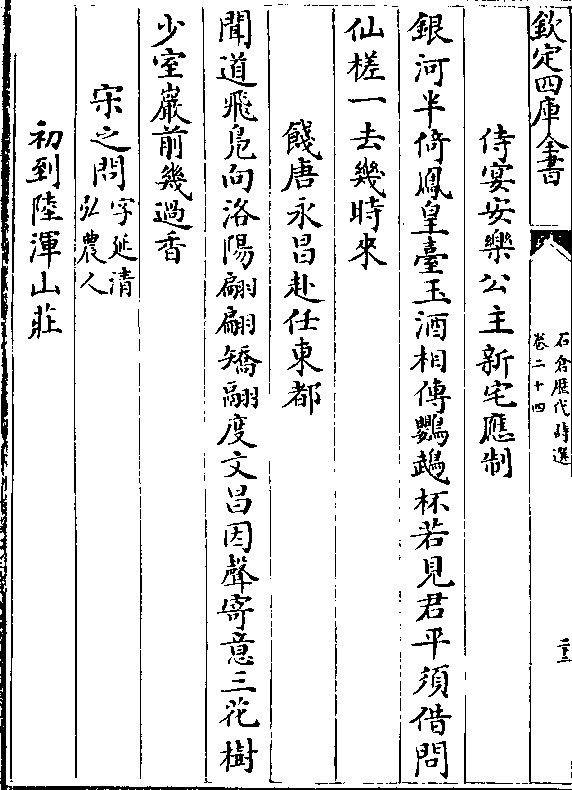 欽定四庫全書
石倉歷代詩選
卷二十四
二十三
侍宴安樂公主新宅應制
銀河半倚鳳皇臺玉酒相傳鸚鵡杯若見君平須借問
仙槎一去幾時來
餞唐永昌赴任東都
聞道飛鳧向洛陽翩翩矯翮度文昌因聲寄意三花樹
少室巖前幾過香
宋之問字延清
弘農人
初到陸渾山莊